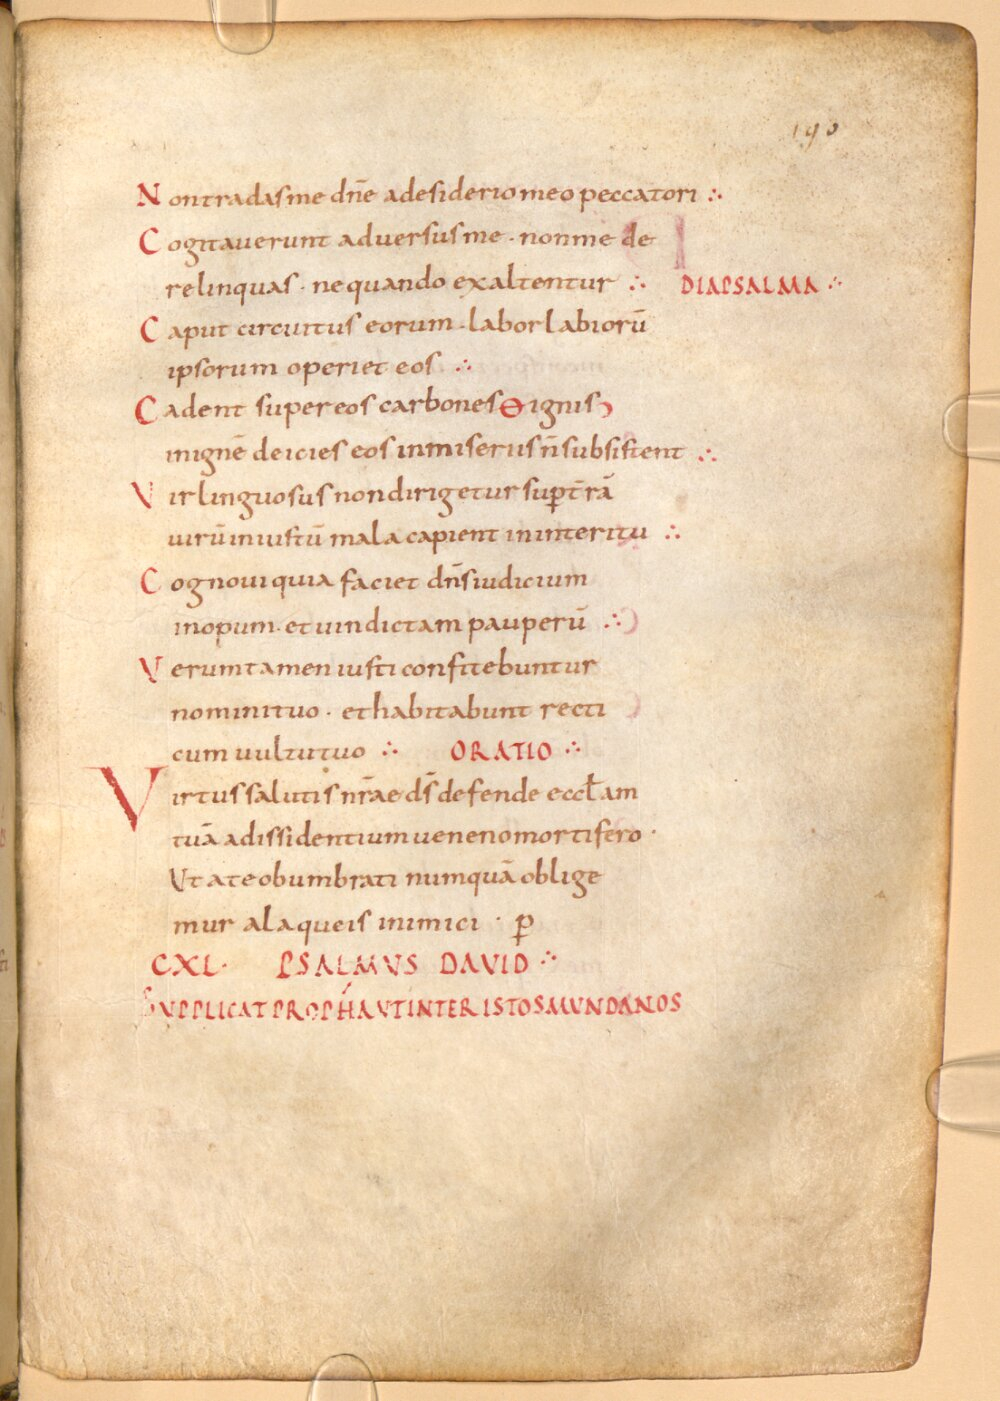 190
Non tradas me dn̄e a desiderio meo peccatori ∴
Cogitaverunt adversus me · non me de
relinquas · ne quando exaltentur ∴ DIAPSALMA ∴
Caput circuitus eorum · labor labiorū
ipsorum operiet eos ∴
Cadent super eos carbones ignis
in ignē deicies eos in miseriis n̄ subsistent ∴
Vir linguosus non dirigetur sup t̄rā
uirū iniustū mala capient in interitu ∴
Cognoui quia faciet dn̄s iudicium
inopum · et uindictam pauperū ∴
Verumtamen iusti confitebuntur
nomini tuo · et habitabunt recti
cum uultu tuo ∴ ORATIO ∴
Virtus salutis nr̄ae ds̄ defende eccl̄am
tuā a dissidentium ueneno mortifero ·
Ut a te obumbrati numquā oblige
mur a laqueis inimici · p
CXL · PSALMUS DAVID ∴
SUPPLICAT PROPHA UT INTER ISTOS MUNDANOS